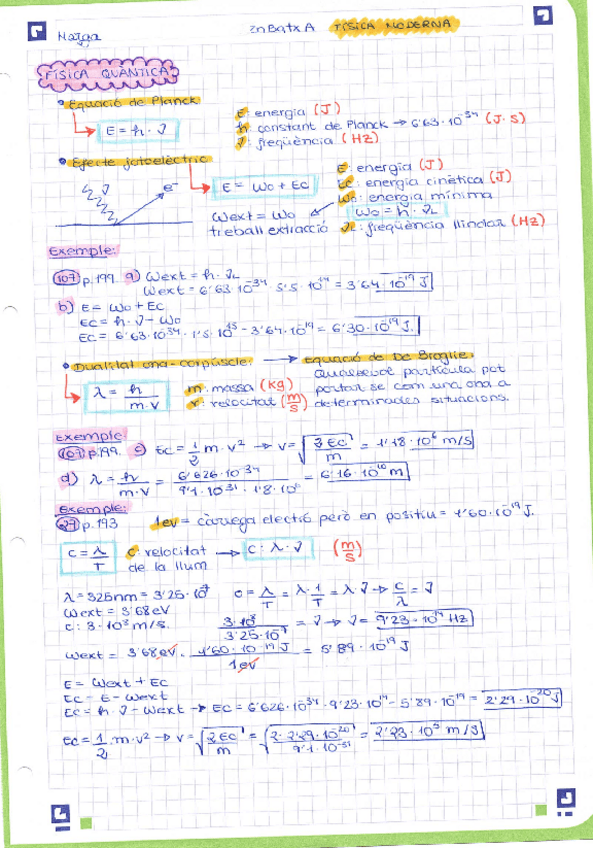 Marga 2n Batx A FÍSICA MODERNA
FÍSICA QUÀNTICA
• Equació de Planck
E = h · ν
E: energia (J)
h: constant de Planck → 6'63·10⁻³⁴ (J·s)
ν: freqüència (Hz)
• Efecte fotoelèctric
e⁻
E = Wo + Ec
E: energia (J)
Ec: energia cinètica (J)
Wo: energia mínima
Wo = h · νL
νL: freqüència llindar (Hz)
Wext = Wo
treball extracció
Exemple:
107 p.199. a) Wext = h · νL
Wext = 6'63·10⁻³⁴ · 5'5·10¹⁴ = 3'64·10⁻¹⁹ J
b) E = Wo + Ec
Ec = h · ν - Wo
Ec = 6'63·10⁻³⁴ · 1'5·10¹⁵ - 3'64·10⁻¹⁹ = 6'30·10⁻¹⁹ J.
• Dualitat ona-corpúscle: → Equació de De Broglie:
λ = h / m·v
m: massa (kg)
v: velocitat (m/s)
Qualsevol partícula pot
portar-se com una ona a
determinades situacions.
Exemple:
107 p.199. c) Ec = 1/2 m·v² → v = √(2Ec/m) = 1'18·10⁶ m/s
d) λ = h / m·v = 6'626·10⁻³⁴ / 9'1·10⁻³¹ · 1'8·10⁶ = 6'16·10⁻¹⁰ m
Exemple:
27 p.193 1ev = càrrega electró però en positiu = 1'60·10⁻¹⁹ J.
c = λ/T c: velocitat de la llum → c: λ · ν (m/s)
λ = 325nm = 3'25·10⁻⁷ c = λ/T = λ · 1/T = λ ν → c/λ = ν
Wext = 3'68eV
c: 3·10⁸ m/s. 3·10⁸ / 3'25·10⁻⁷ = ν → ν = 9'23·10¹⁴ Hz
Wext = 3'68ev · 1'60·10⁻¹⁹ J / 1ev = 5'89·10⁻¹⁹ J
E = Wext + Ec
Ec = E - Wext
Ec = h · ν - Wext → Ec = 6'626·10⁻³⁴ · 9'23·10¹⁴ - 5'89·10⁻¹⁹ = 2'29·10⁻²⁰ J
Ec = 1/2 m·v² → v = √(2Ec/m) = √(2·2'29·10⁻²⁰ / 9'1·10⁻³¹) = 2'23·10⁵ m/s